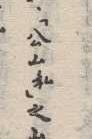 「公山私」之